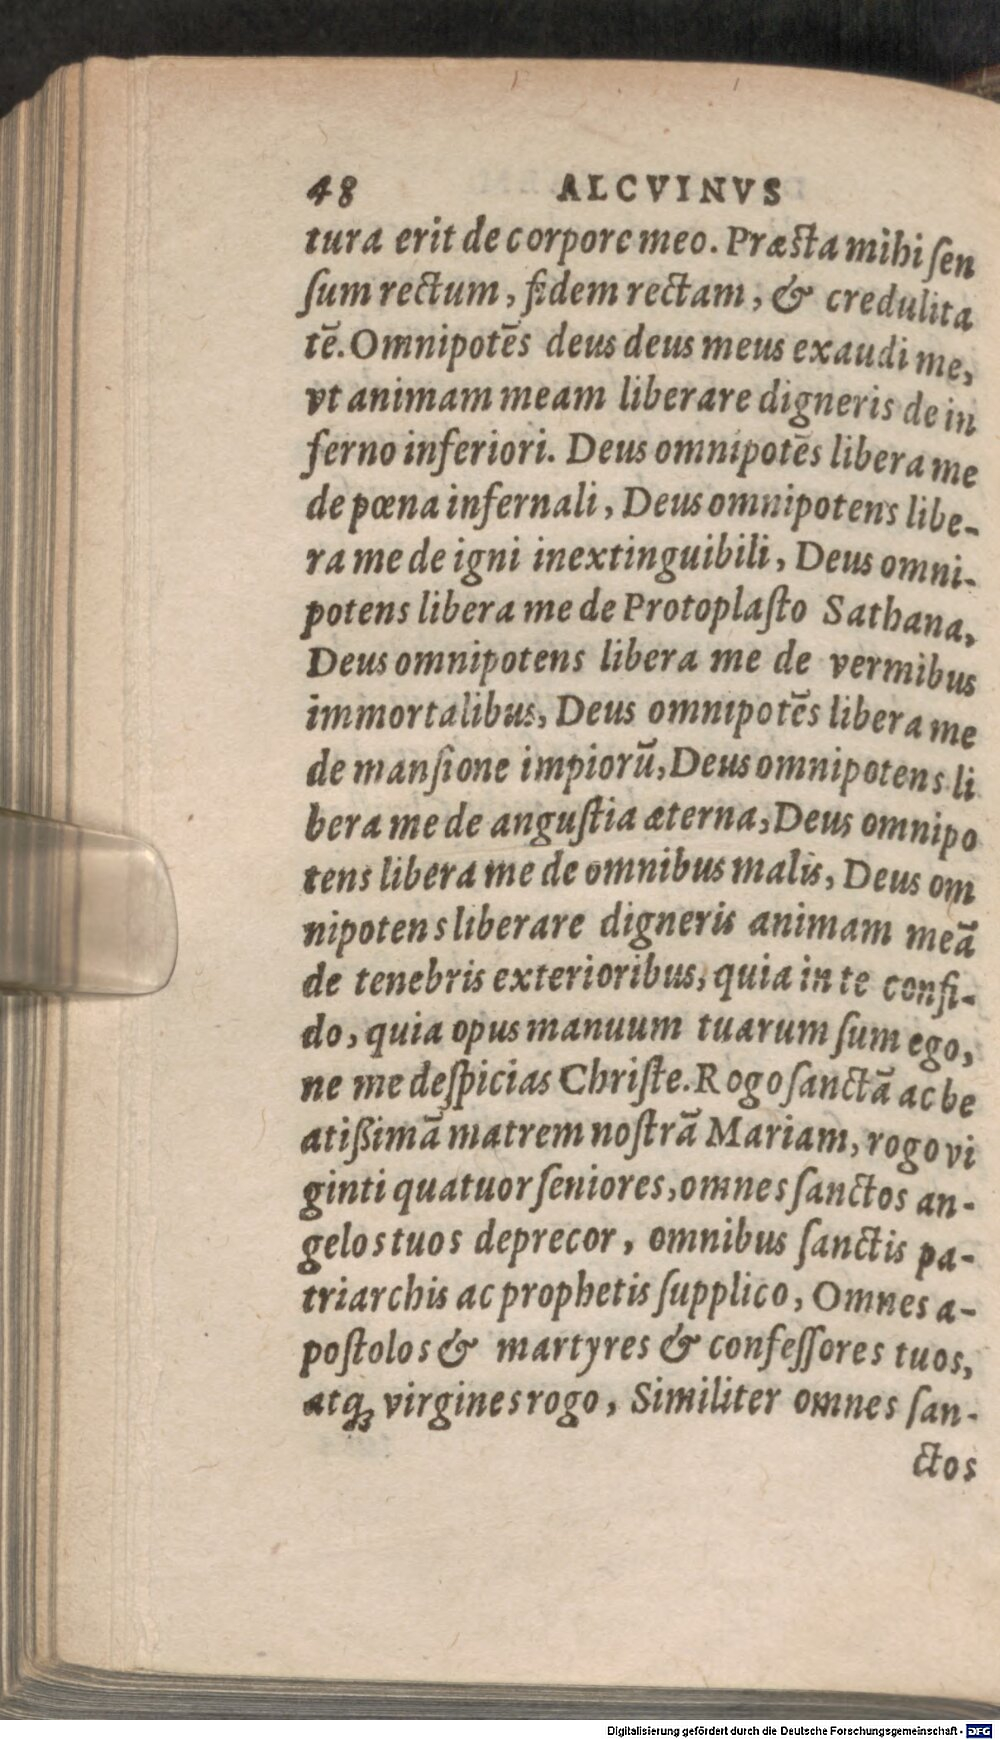 48 ALCVINVS
tura erit de corpore meo. Præsta mihi sen
sum rectum, fidem rectam, & credulita
tē. Omnipotēs deus deus meus exaudi me,
vt animam meam liberare digneris de in
ferno inferiori. Deus omnipotēs libera me
de pœna infernali, Deus omnipotens libe-
ra me de igni inextinguibili, Deus omni-
potens libera me de Protoplasto Sathana,
Deus omnipotens libera me de vermibus
immortalibus, Deus omnipotēs libera me
de mansione impiorū, Deus omnipotens li
bera me de angustia æterna, Deus omnipo
tens libera me de omnibus malis, Deus om
nipotens liberare digneris animam meā
de tenebris exterioribus, quia in te confi-
do, quia opus manuum tuarum sum ego,
ne me despicias Christe. Rogo sanctā ac be
atißimā matrem nostrā Mariam, rogo vi
ginti quatuor seniores, omnes sanctos an-
gelos tuos deprecor, omnibus sanctis pa-
triarchis ac prophetis supplico, Omnes a-
postolos & martyres & confessores tuos,
atq; virgines rogo, Similiter omnes san-
ctos
Digitalisierung gefördert durch die Deutsche Forschungsgemeinschaft - DFG